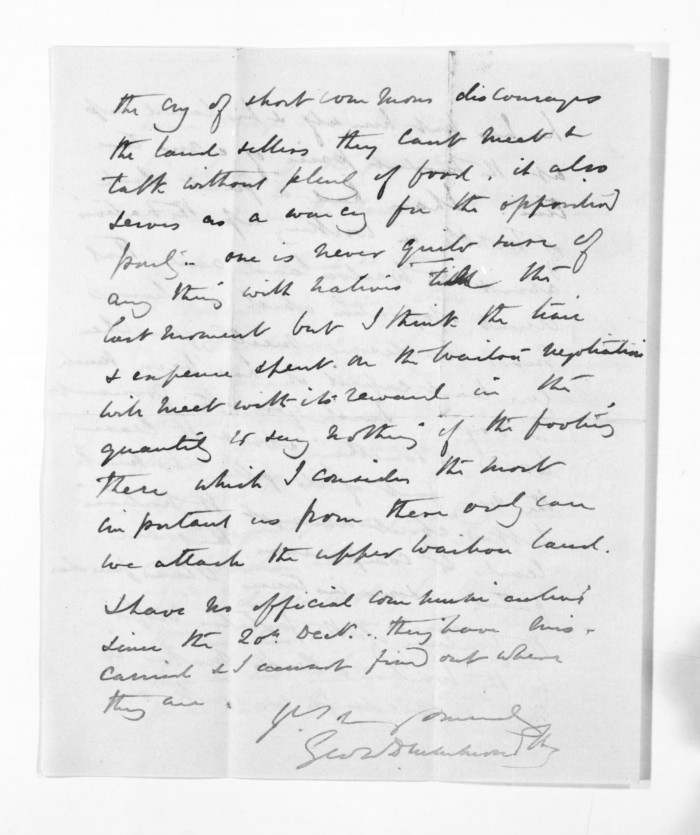 the cry of short commons discourages
the land sellers they cant meet &
talk without plenty of food. it also
serves as a warcry for the opposition
party.. one is never quite sure of
any thing with natives till the
last moment but I think the time
& expense spent on the Wairoa negotiations
will meet with its reward in the
quantity to say nothing of the footing
there which I consider the most
important as from there only can
we attack the upper Wairoa land.
I have no official communications
since the 20th Decr.. they have mis-
carried & I cannot find out where
they are.
Yrs sincerely